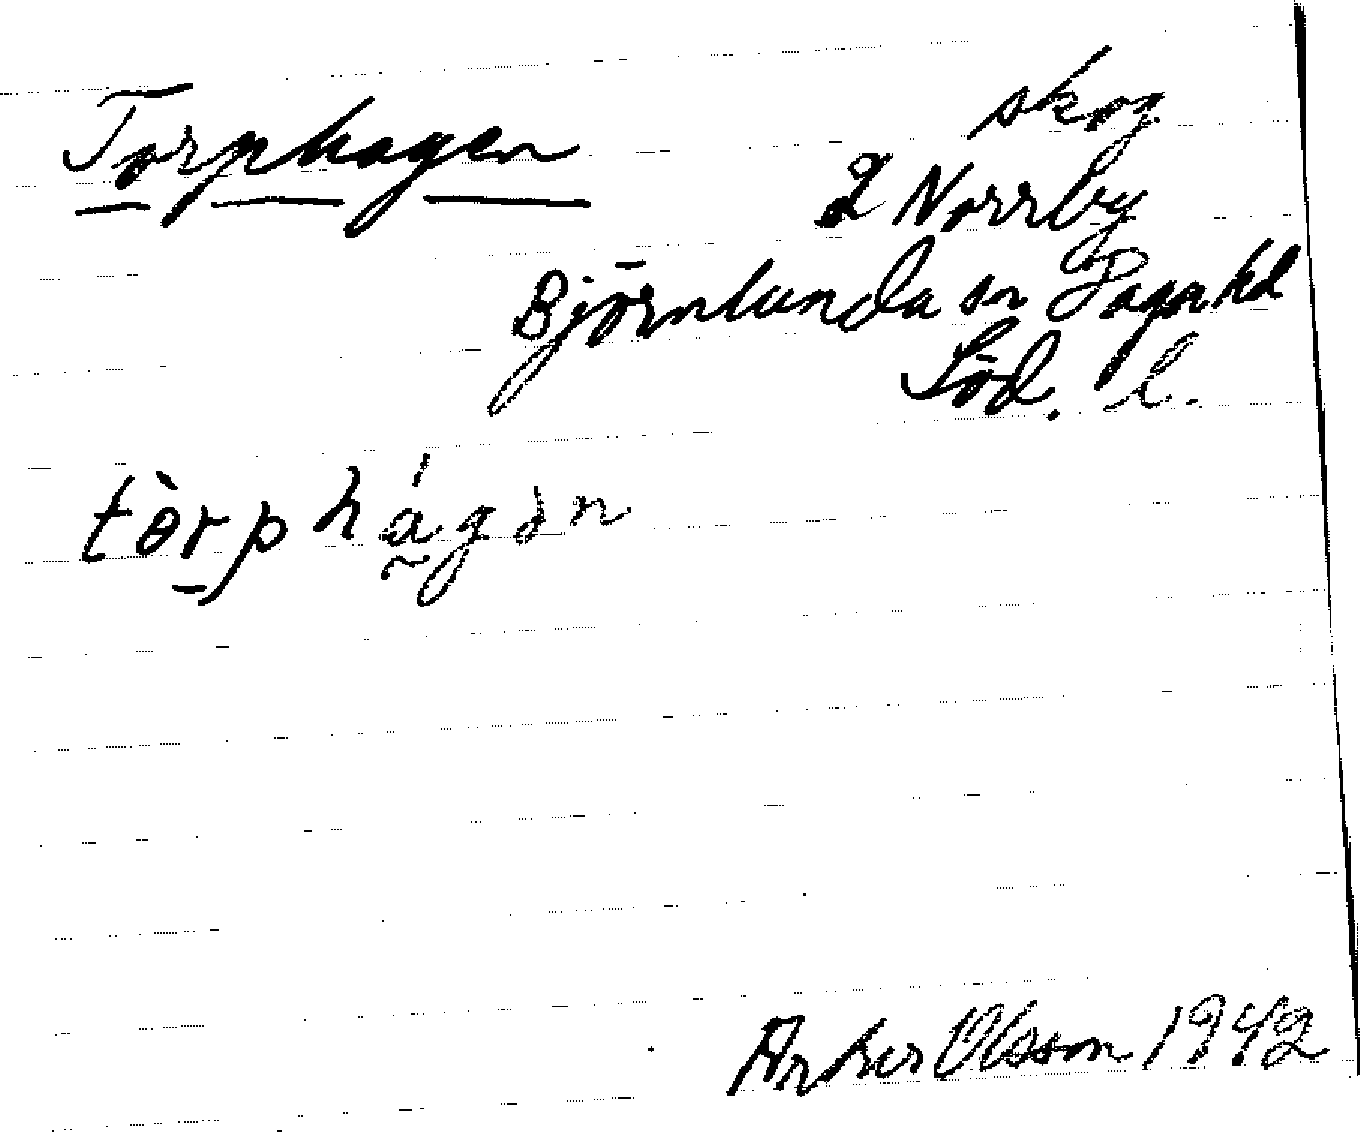 Torphagen
skog
I Norrby
Björnlunda sn Daga hd
Söd. l.
tòrphágən
Olsson 1942